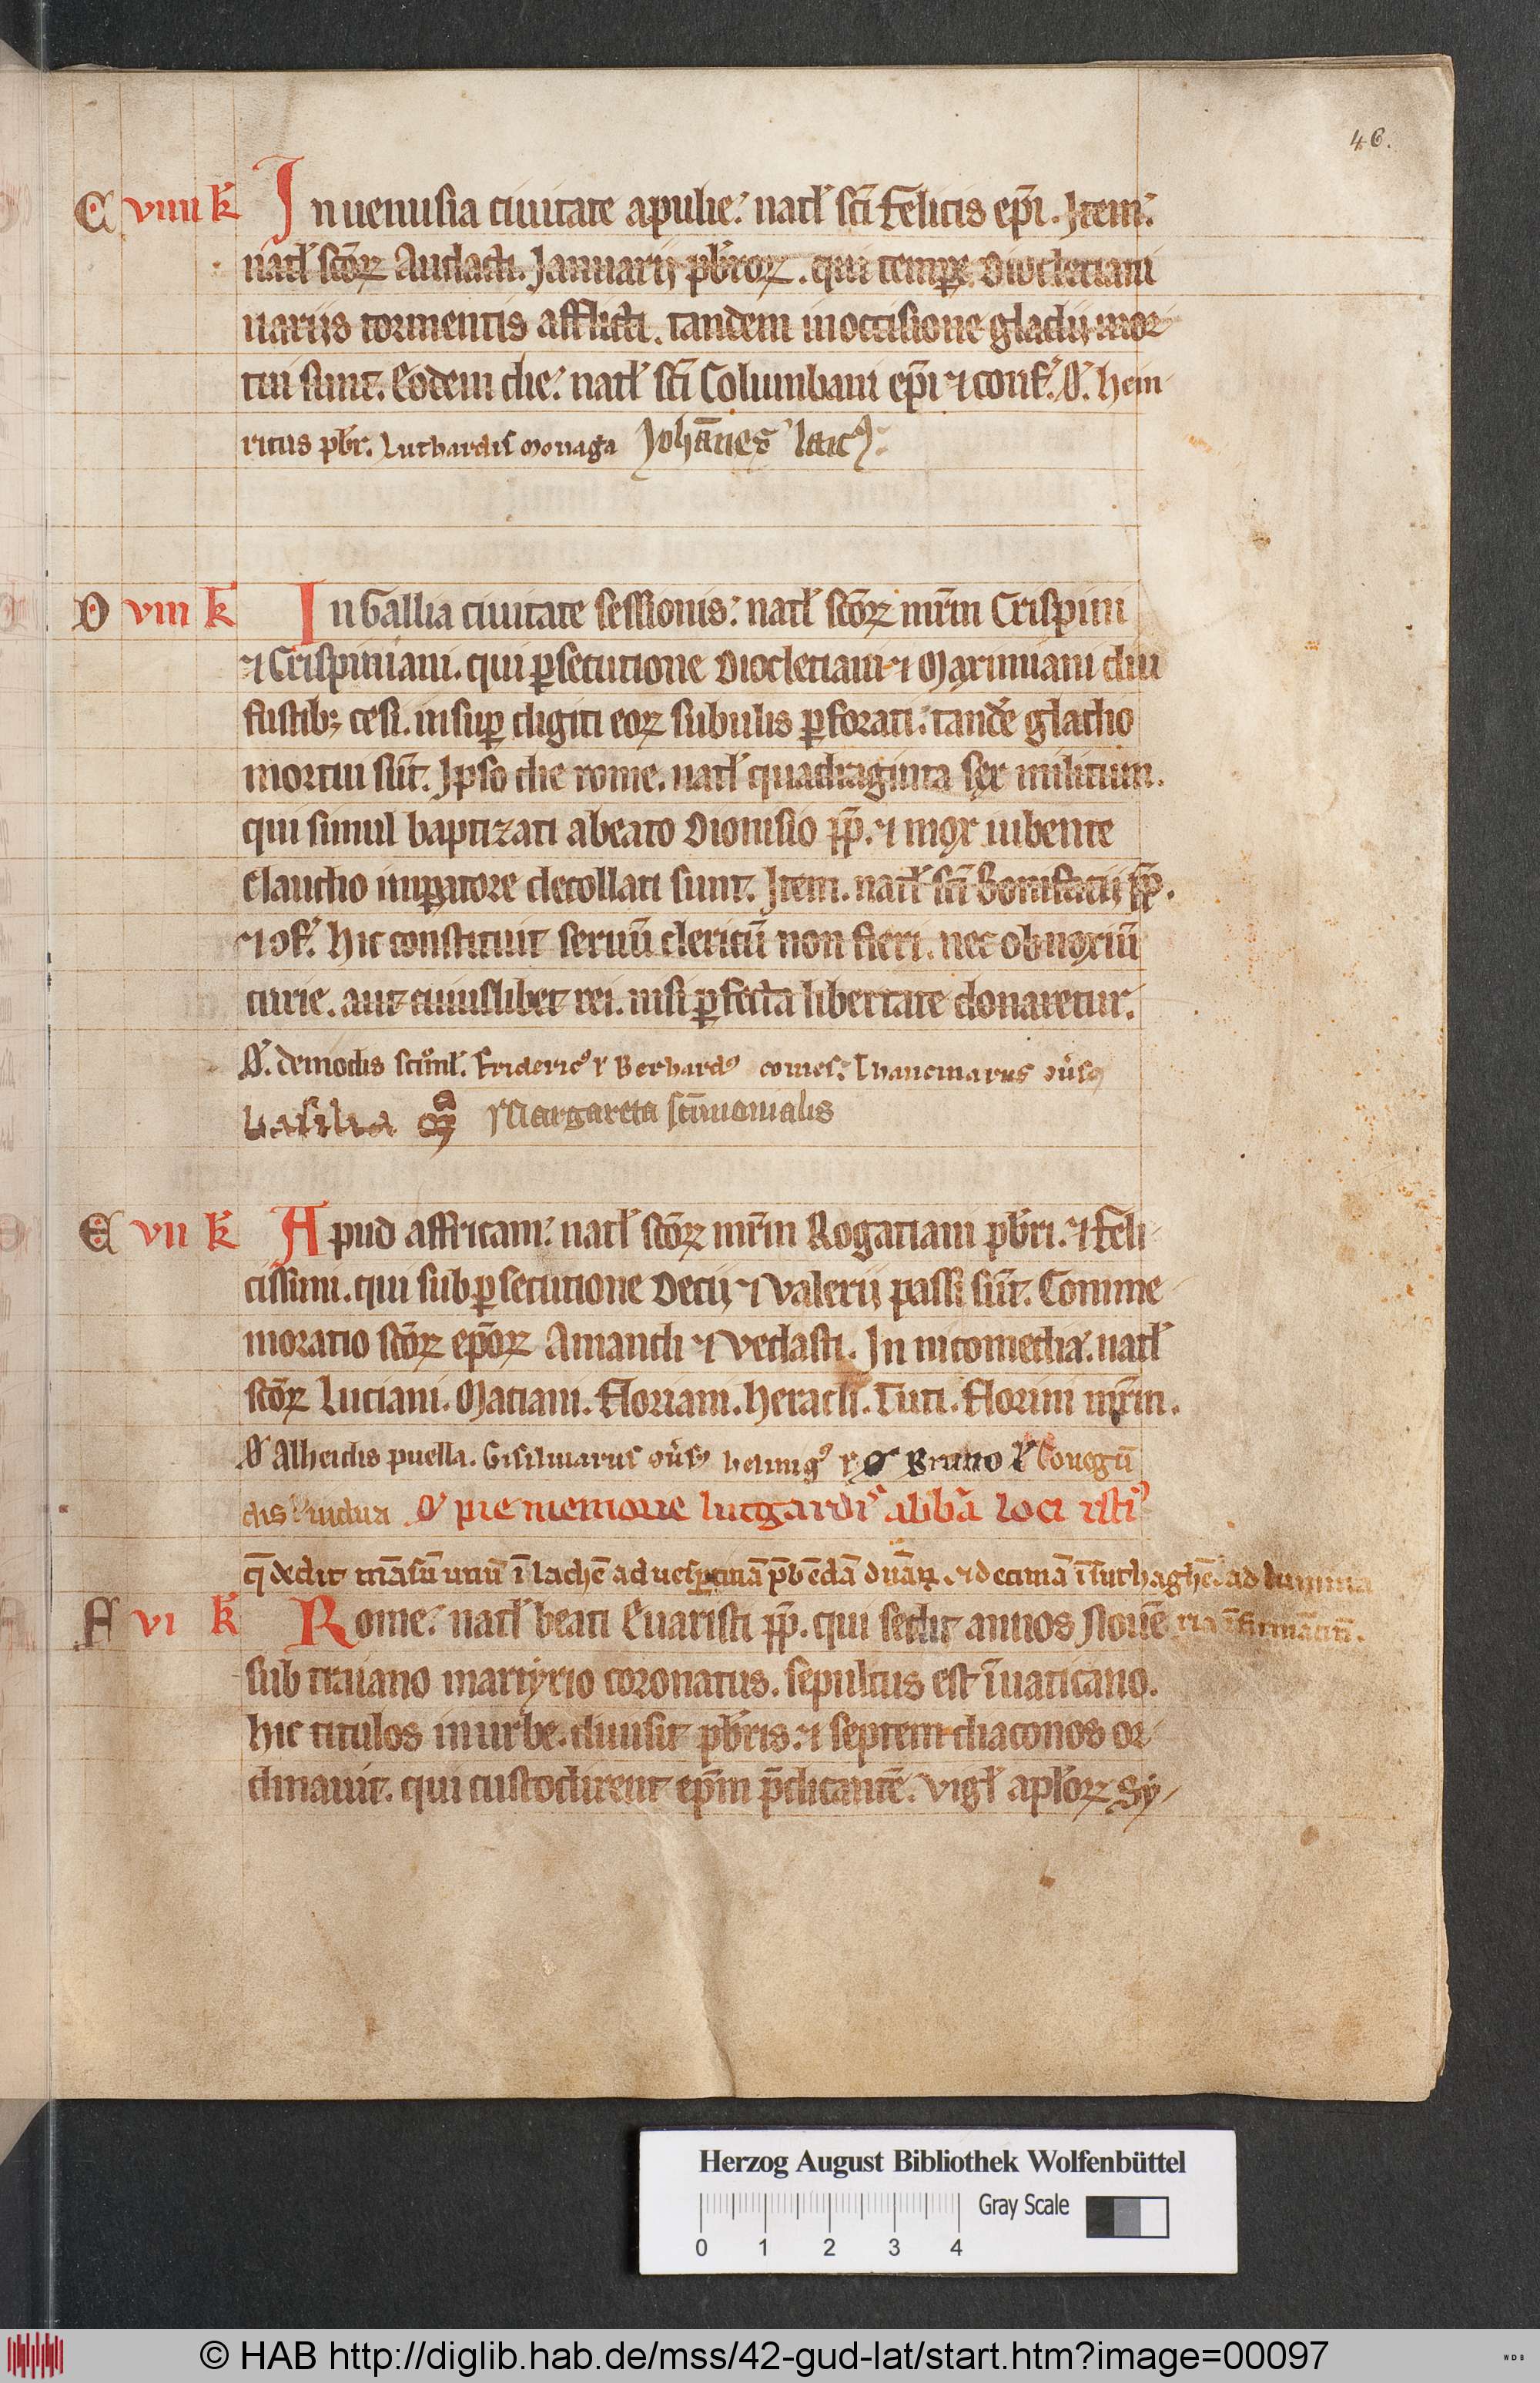 46.
C viiii k̄ In uenusia ciuitate apulie. natl̓ sc̄i Felicis ep̄i. Item.
natl̓ sc̄oꝝ Audacti. Januarij pb̄roꝝ. qui tempꝑe Diocletiani
uariis tormentis afflicti. tandem inoccisione gladij mor-
tui sunt. Eodem die. natl̓ sc̄i Columbani ep̄i ⁊ conf̓. O̓. hein-
ricus pb̄r. Luthardis monaga Joh̄anes laicꝰ
D viii k̄ In Gallia ciuitate sessionis. natl̓ sc̄oꝝ mr̄m Crispini
⁊ Crispiniani. qui ꝑsecutione Diocletiani ⁊ Maximiani diu
fustibꝫ cesi. insuꝑ digiti eoꝝ subulis ꝑforati. tandē gladio
mortui sūt. Ipso die rome. natl̓ quadraginta sex militum.
qui simul baptizati abeato Dionisio pp̄. ⁊ mox iubente
Claudio imꝑatore decollati sunt. Item. natl̓ sc̄i Bonifatij pp̄.
⁊ ɔf̓. Hic constituit seruū clericū non fieri. nec obnoxiū
curie. aut cuiuslibet rei. nisi ꝑfecta libertate donaretur.
O̓. Demodis Fridericꝰ ⁊ Berhardꝰ comes. Thancmarus
basilia Margareta sc̄imonialis
E vii k̄ Apud affricam. natl̓ sc̄oꝝ mr̄m Rogatiani pb̄ri. ⁊ Feli-
cissimi. qui sub ꝑsecutione Decij ⁊ Valerij passi sūt. Comme-
moratio sc̄oꝝ ep̄oꝝ Amandi ⁊ Vedasti. In nicomedia. natl̓
sc̄oꝝ Luciani. Maciani. Floriani. Heracli. Titi. Florini mr̄m.
O̓ Alheidis puella. Gisilmarus Bruno Conegū
dis uidua O̓ pie memorie lutgardis abb̄a loci istiꝰ
q̄ dedit māsū unū ī lachē ad uesꝑtinā p̄bēdā dn̄aꝝ. ⁊ decimā ī suthaghē ad lumina
F vi k̄ Rome. natl̓ beati Euaristi pp̄. qui sedit annos Nouē ria īfirmātiū.
sub traiano martyrio coronatus. sepultus est ī uaticano.
hic titulos in urbe diuisit pb̄ris. ⁊ septem diaconos or-
dinauit. qui custodirent ep̄m p̄dicantē. Vigl̓ apl̓oꝝ Sy-
Herzog August Bibliothek Wolfenbüttel
Gray Scale
0 1 2 3 4
© HAB http://diglib.hab.de/mss/42-gud-lat/start.htm?image=00097
WDB